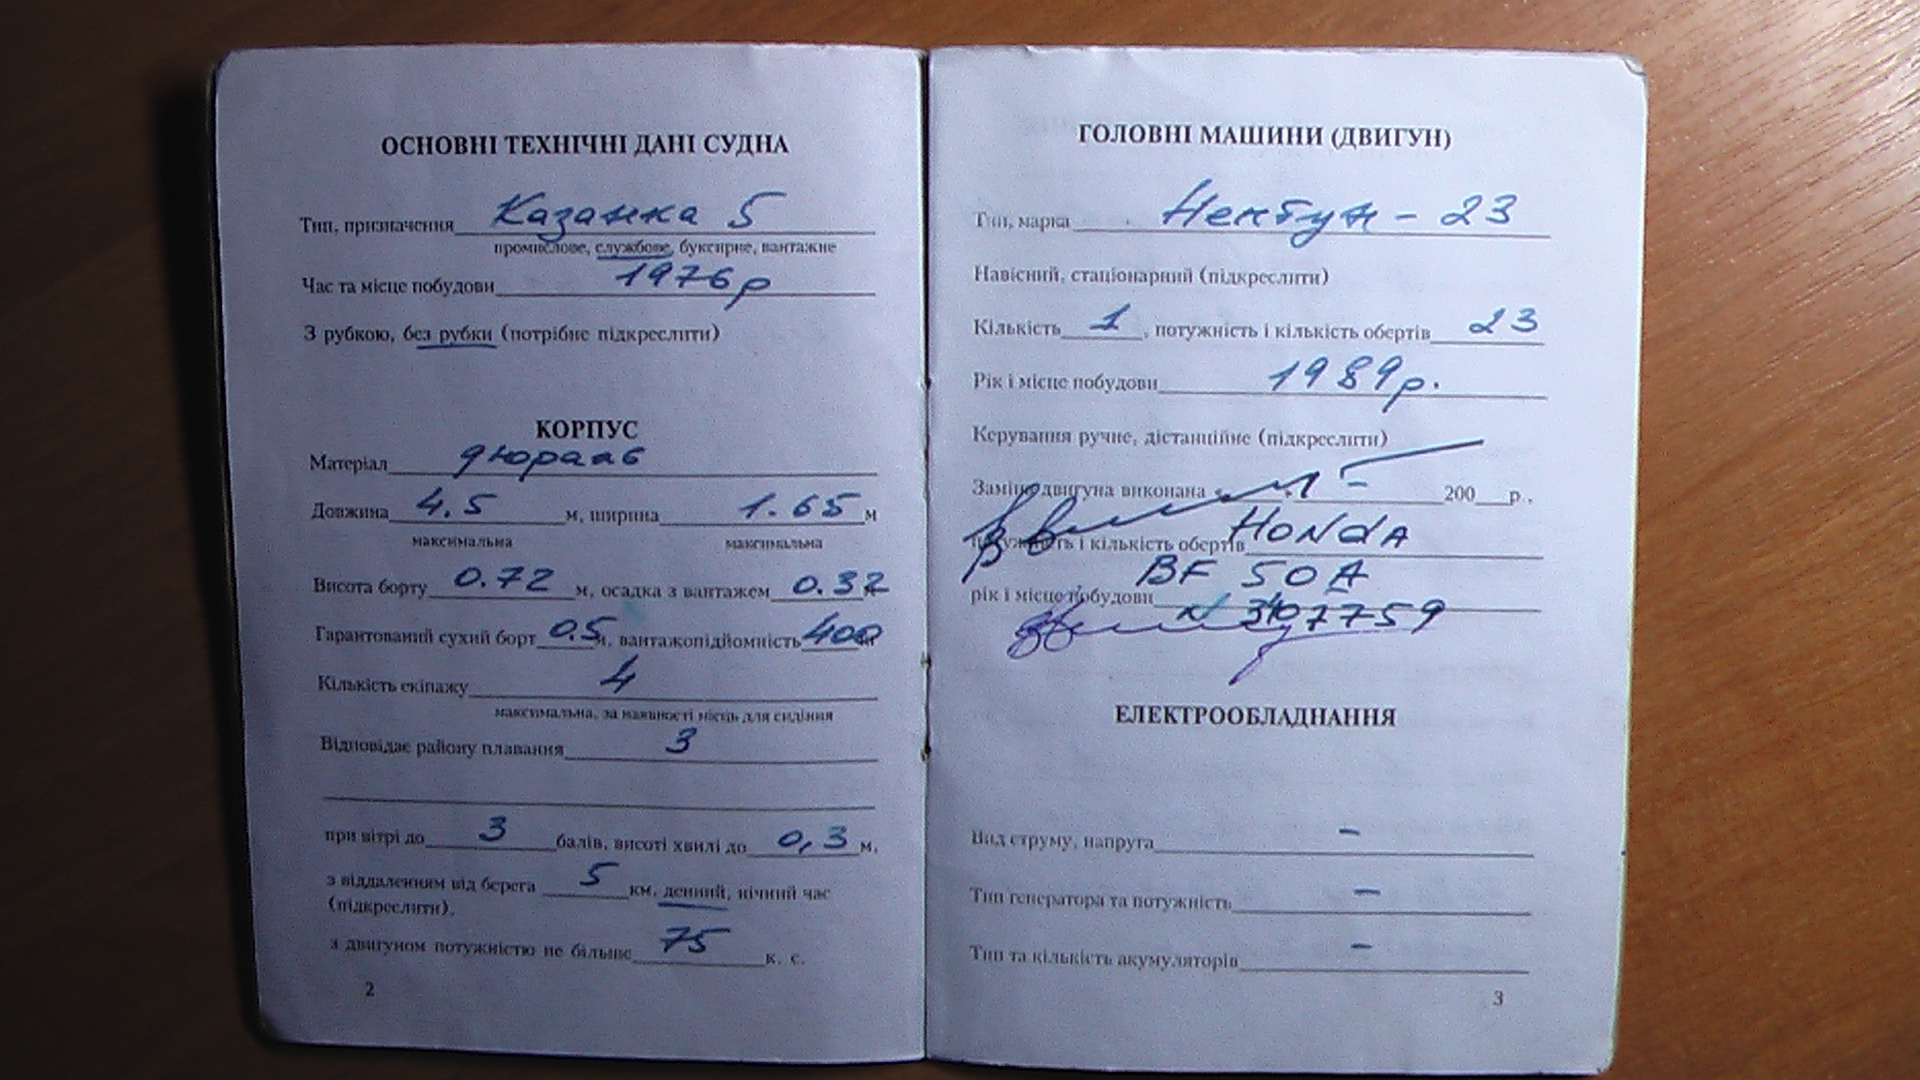 ОСНОВНІ ТЕХНІЧНІ ДАНІ СУДНА
Тип, призначення Казанка 5
промислове, службове, буксирне, вантажне
Час та місце побудови 1976р
З рубкою, без рубки (потрібне підкреслити)
КОРПУС
Матеріал дюраль
Довжина 4.5 м, ширина 1.65 м
максимальна максимальна
Висота борту 0.72 м, осадка з вантажем 0.32
Гарантований сухий борт 0.5 м, вантажопідйомність 400
Кількість екіпажу 4
максимальна, за наявності місць для сидіння
Відповідає району плавання 3
при вітрі до 3 балів, висоті хвилі до 0,3 м,
з віддаленням від берега 5 км, денний, нічний час
(підкреслити),
з двигуном потужністю не більше 75 к. с.
2
ГОЛОВНІ МАШИНИ (ДВИГУН)
Тип, марка Нептун - 23
Навісний, стаціонарний (підкреслити)
Кількість 1, потужність і кількість обертів 23
Рік і місце побудови 1989р.
Керування ручне, дістанційне (підкреслити)
Заміна двигуна виконана 200 р.,
потужність і кількість обертів HONdA
BF 50A
рік і місце побудови
ЕЛЕКТРООБЛАДНАННЯ
Вид струму, напруга -
Тип генератора та потужність -
Тип та кількість акумуляторів -
3